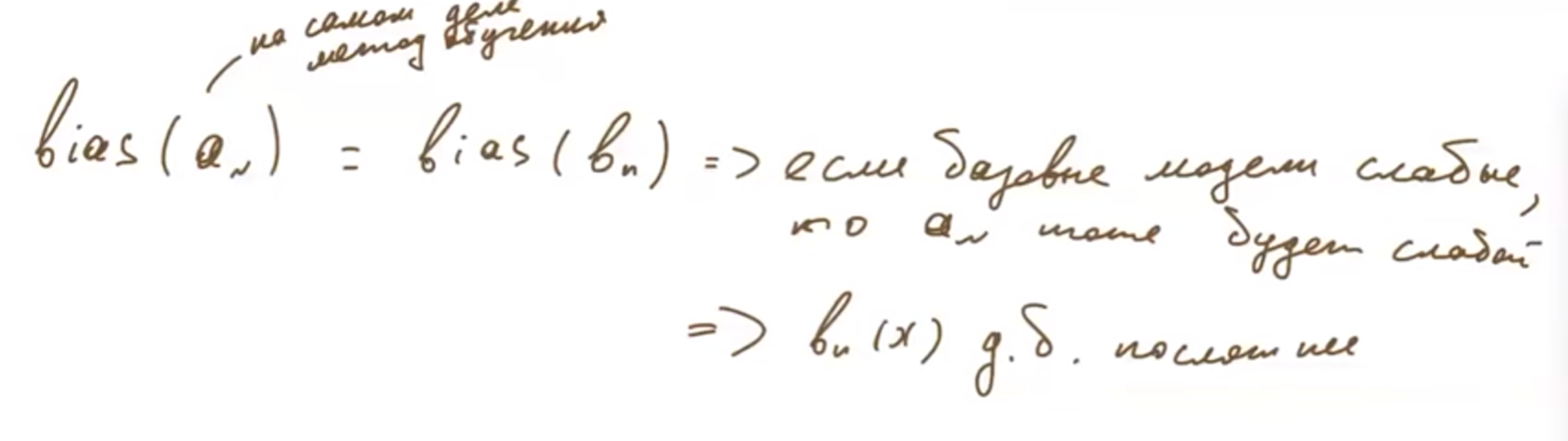 на самом деле
метод обучения
bias(a_N) = bias(b_n) => если базовые модели слабые,
то a_N тоже будет слабой
=> b_n(x) д.б. посложнее